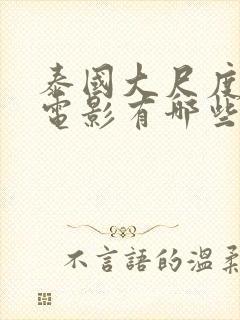 泰國大尺度
電影有哪些
不言語的温柔